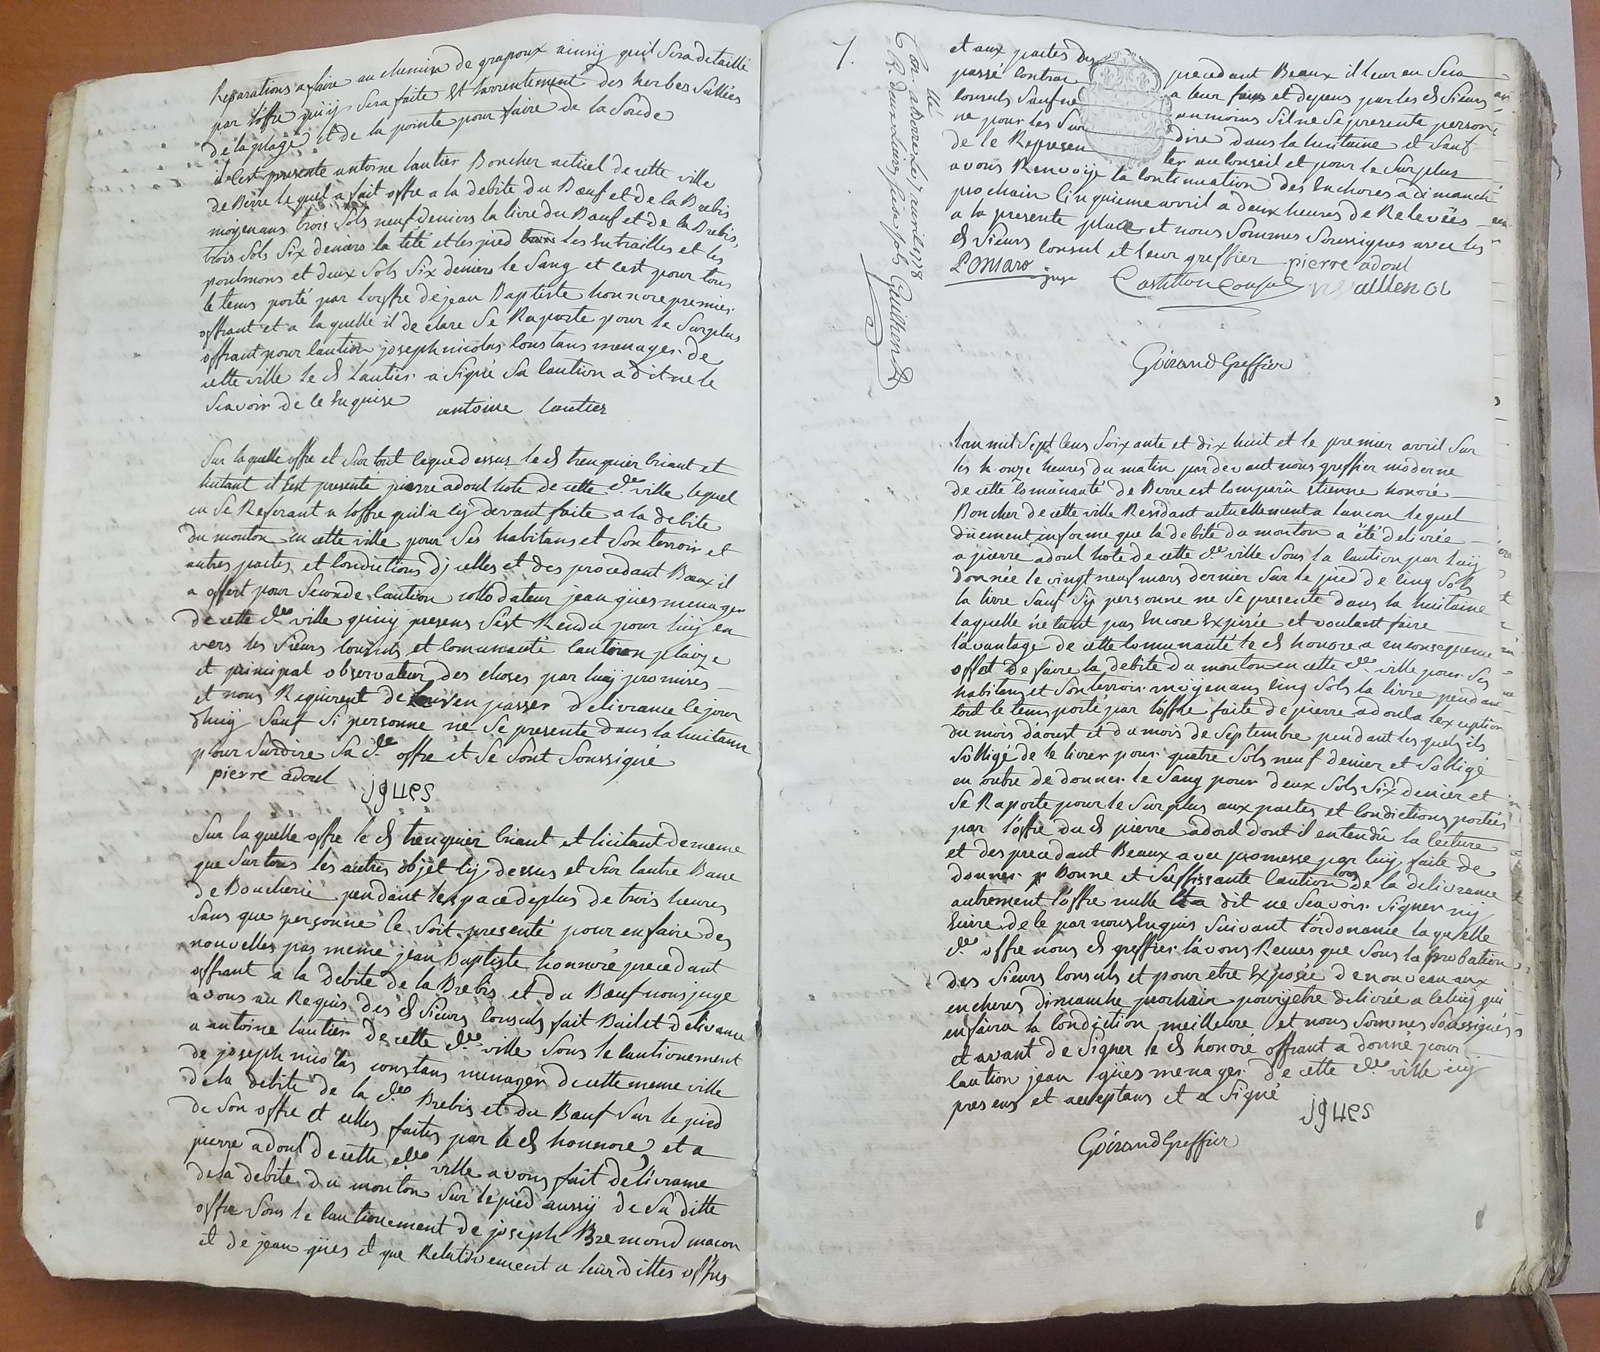 Reparations a faire au chemin de grapoux ainsy quil sera detaillé
par l'offre qui y sera faite et l'arrentement des herbes sallées
de la plage et de la pointe pour faire de la Soude
il s'est presenté antoine lautier Boucher actuel de cette ville
de Berre lequel a fait offre a la debite du Bœuf et de la Brebis
moyenans trois sols neuf deniers la livre du Bœuf et de la Brebis,
trois sols six deniers la tete et les pied les entrailles et les
poulmons et deux sols six deniers le sang et c'est pour tous
le tems porté par l'offre de jean Baptiste honnore premier
offrant et a la quelle il declare se Raporte pour le surplus
offrant pour caution joseph nicolas constans menager de
cette ville le d lautier a signé sa caution a dit ne le
scavoir de le enquise antoine lautier
Sur la quelle offre et sur tout ce que dessus le d trenquier criant et
licitant il s'est presenté pierre adoul hote de cette de ville lequel
en se Referant a l'offre quil a cy devant faite a la debite
du mouton en cette ville pour ses habitans et son terroir et
autres pactes et condictions d'jcelles et des precedant Baux il
a offert pour seconde caution collodateur jean gües menager
de cette de ville qui icy presens s'est Rendu pour luy en
vers les sieurs consuls et communauté caution pleige
et principal observateur des choses par luy promises
et nous Requirent de leur en passer delivrance ce jour
dhuy sauf si personne ne se presente dans la huitaine
pour surdire sa de offre et se sont soussigné
pierre adoul
jgues
Sur la quelle offre le d trenquier criant et licitant de meme
que sur tous les autres objet cy dessus et sur l'autre Banc
de Boucherie pendant l'espace de plus de trois heures
sans que personne ce soit presenté pour en faire des
nouvelles pas meme jean Baptiste honnoré precedant
offrant a la debite de la Brebis et du Bœuf nous juge
avons au Requis des d sieurs consuls fait Bail et delivrance
a antoine lautier de cette de ville sous le cautionement
de joseph nicolas constans menager de cette meme ville
de la debite de la de Brebis et du Bœuf sur le pied
de son offre et celles faites par le d honnore, et a
pierre adoul de cette de ville avons fait delivrance
de la debite du mouton sur le pied aussy de sa ditte
offre sous le cautionement de joseph Bremond macon
et de jean gües et que Relativement a leur dittes offres
7.
Con
a Berre le 7 avril 1778
R. deux livres
sols Guilhen
et aux pactes des precedant Beaux il leur en sera
passé contrac a leur frais et depens par les d sieurs
consuls sauf ne au moins s'il ne se presente person
ne pour les sur dire dans la huitaine et sauf
de le Represen ter au conseil et pour le surplus
avons Renvoyé la continuation des encheres a dimanche
prochain cinquieme avril a deux heures de Relevées
a la presente place et nous sommes soussignes avec les
d sieurs consul et leur greffier pierre adoul
juge Castillon Consul
Goirand Greffier
L'an mil sept cens soixante et dix huit et le premier avril sur
les onze heures du matin par devant nous greffier moderne
de cette communauté de Berre est comparu etienne honoré
Boucher de cette ville Residant actuellement a lancon lequel
düement informe que la debite du mouton a été delivrée
a pierre adoul hote de cette de ville sous la caution par luy
donnée le vingt neuf mars dernier sur le pied de cinq sols
la livre sauf sy personne ne se presente dans la huitaine
laquelle n'etant pas encore expirée et voulant faire
l'avantage de cette communauté le d honore a en consequence
offert de faire la debite du mouton en cette de ville pour ses
habitans et son terroir moyenans cinq sols la livre pendant
tout le tems porté par l'offre faite de pierre adoul a l'exception
du mois d'aoust et du mois de septembre pendant lesquels il
s'obligé de le livrer pour quatre sols neuf denier et s'obligé
en outre de donner le sang pour deux sols six denier et
se Raporte pour le surplus aux pactes et condictions portées
par l'offre du d pierre adoul dont il entendû la lecture
et des precedant Beaux avec promesse par luy faite de
donner Bonne et suffissante caution lors de la delivrance
autrement l'offre nulle et a dit ne scavoir signer ny
ecrire de le par nous enquis suivant l'ordonance laquelle
de offre nous d greffier l'avons Remes que sous la probation
des sieurs consuls et pour etre exposée de nouveau aux
encheres dimanche prochain pour y etre delivrée a celuy qui
en faira la condiction meilleure et nous sommes soussignés
et avant de signer le d honoré offrant a donné pour
caution jean gües menager de cette de ville icy
presens et acceptans et a signé
jgues
Goirand Greffier